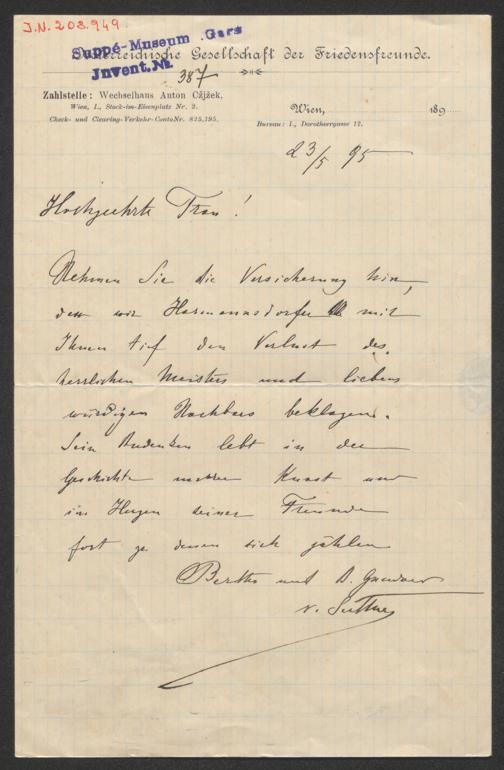 J.N. 208.949
Suppé-Museum Gars
Jnvent. No.
387
Österreichische Gesellschaft der Friedensfreunde.
Zahlstelle: Wechselhaus Anton Cžjžek,
Wien, I., Stock-im-Eisenplatz Nr. 2.
Check- und Clearing-Verkehr-Conto Nr. 825,195.
Wien, 189
Bureau: I., Dorotheergasse 12.
23/5 95
Hochgeehrte Frau!
Nehmen Sie die Versicherung hin,
dass wir Harmannsdorfer mit
Ihnen tief den Verlust des
herrlichen Meisters und liebens
würdigen Nachbars beklagen.
Sein Andenken lebt in der
Geschichte unserer Kunst und
im Herzen seiner Freunde
fort zu denen sich zählen
Bertha und A. Gundaccar
v. Suttner